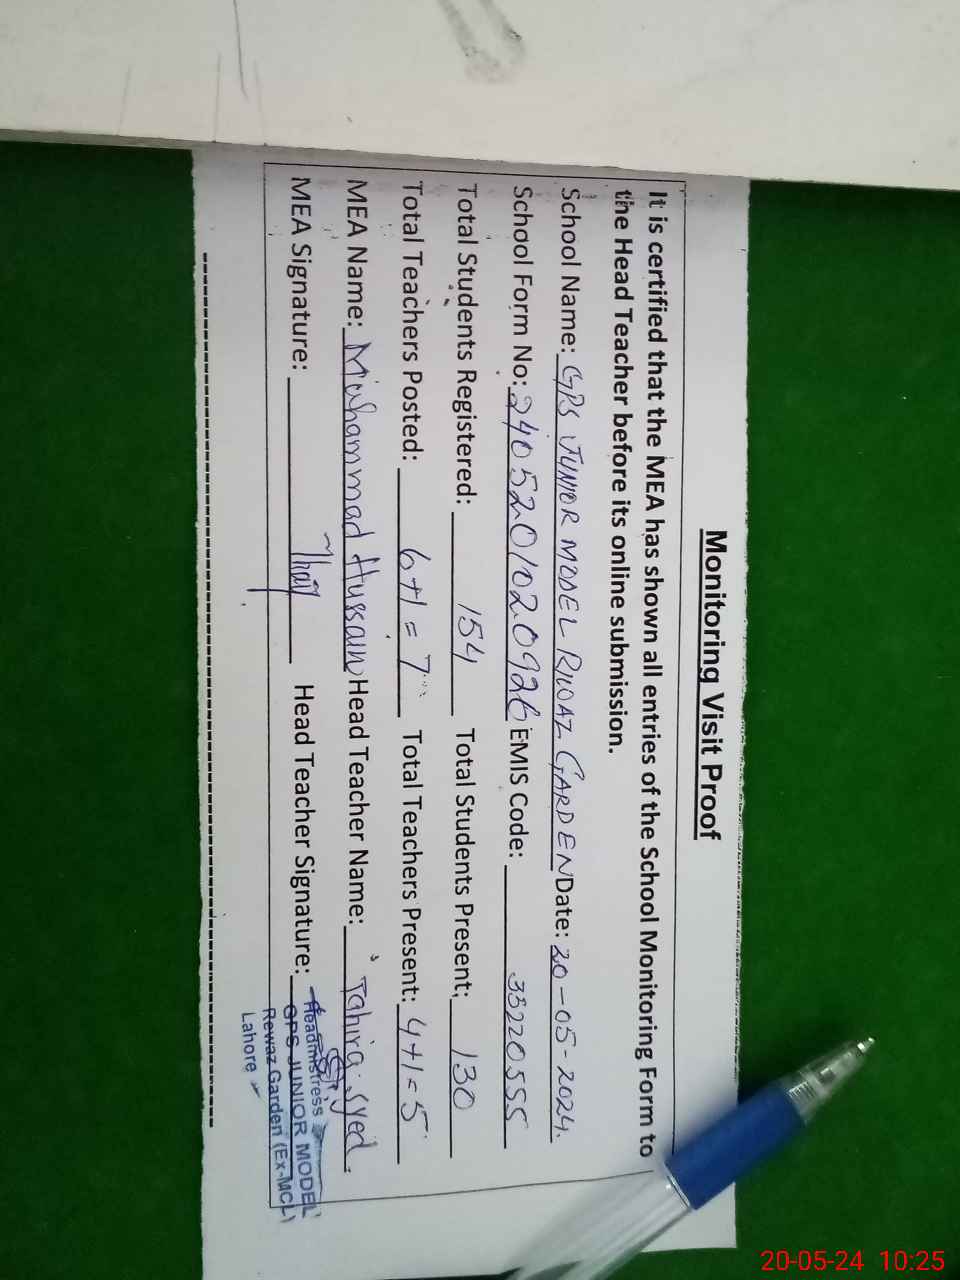 Monitoring Visit Proof
It is certified that the MEA has shown all entries of the School Monitoring Form to
the Head Teacher before its online submission.
School Name: GPS JUNIOR MODEL RIWAZ GARDEN Date: 20-05-2024.
School Form No: 2405201020926 EMIS Code: 35220555
Total Students Registered: 154 Total Students Present: 130
Total Teachers Posted: 6+1=7 Total Teachers Present: 4+1=5
MEA Name: Muhammad Hussain Head Teacher Name: Tahira Syed.
MEA Signature: Head Teacher Signature:
Headmistress
GPS JUNIOR MODEL
Rewaz Garden (Ex-MCL)
Lahore
20-05-24 10:25